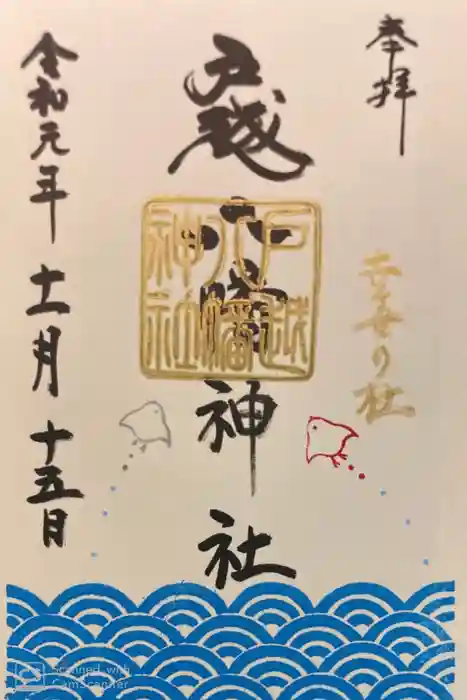 奉拝
喜寿の社
戸越八幡神社
戸越八幡神社
令和元年十一月十五日
Scanned with
CamScanner